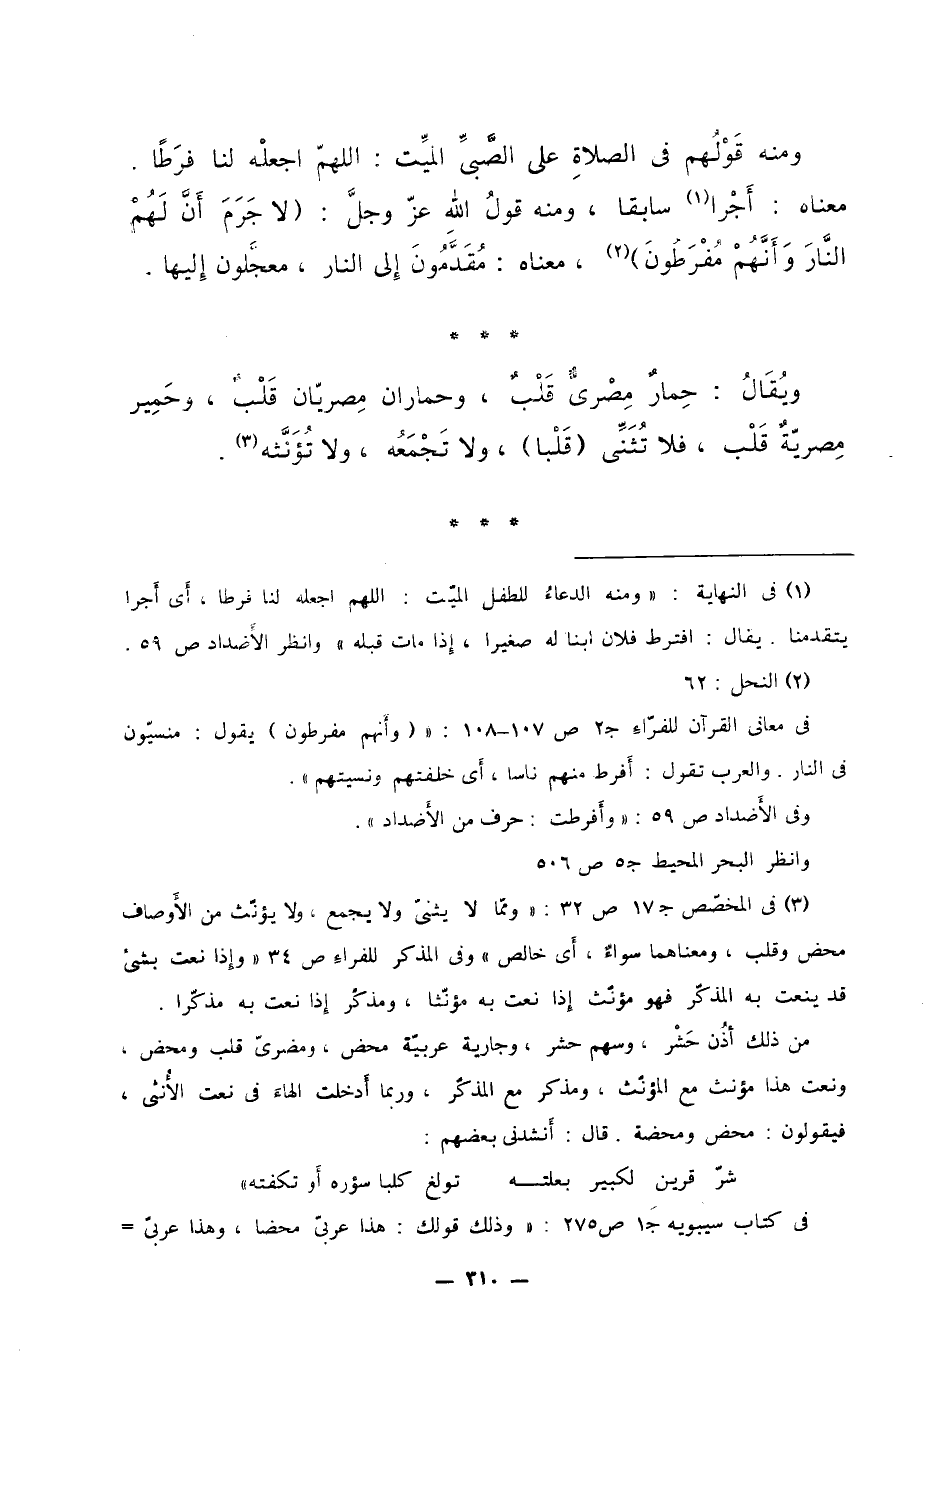 ومنه قَوْلُهم فى الصلاةِ على الصَّبىِّ الميِّت : اللهمّ اجعلْه لنا فرَطًا .
معناه : أَجْرا(١) سابقا ، ومنه قولُ اللهِ عزّ وجلَّ : (لا جَرَمَ أَنَّ لَهُمْ
النَّارَ وَأَنَّهُمْ مُفْرَطُونَ)(٢) ، معناه : مُقَدَّمُونَ إلى النار ، معجلُون إليها .
* * *
ويُقَالُ : حِمارٌ مِصْرىٌّ قَلْبٌ ، وحماران مِصريّان قَلْبٌ ، وحَمِير
مِصريّةٌ قَلْب ، فلا تُثَنِّى (قَلْبا) ، ولا تَجْمَعُه ، ولا تُؤَنَّثه(٣) .
* * *
(١) فى النهاية : « ومنه الدعاءُ للطفل الميّت : اللهم اجعله لنا فرطا ، أى أجرا
يتقدمنا . يقال : افترط فلان ابنا له صغيرا ، إذا مات قبله » وانظر الأضداد ص ٥٩ .
(٢) النحل : ٦٢
فى معانى القرآن للفرّاء ج٢ ص ١٠٧–١٠٨ : « ( وأنهم مفرطون ) يقول : منسيّون
فى النار . والعرب تقول : أفرط منهم ناسا ، أى خلفتهم ونسيتهم » .
وفى الأضداد ص ٥٩ : « وأفرطت : حرف من الأضداد » .
وانظر البحر المحيط ج٥ ص ٥٠٦
(٣) فى المخصّص ج١٧ ص ٣٢ : « وممّا لا يثنىّ ولا يجمع ، ولا يؤنّث من الأوصاف
محض وقلب ، ومعناهما سواءٌ ، أى خالص » وفى المذكر للفراء ص ٣٤ « وإذا نعت بشئ
قد ينعت به المذكّر فهو مؤنّث إذا نعت به مؤنّثا ، ومذكّر إذا نعت به مذكّرا .
من ذلك أذُن حَشْر ، وسهم حشر ، وجارية عربيّة محض ، ومضرىّ قلب ومحض ،
ونعت هذا مؤنث مع المؤنّث ، ومذكر مع المذكّر ، وربما أدخلت الهاءَ فى نعت الأُنثى ،
فيقولون : محض ومحضة . قال : أنشدنى بعضهم :
شرّ قرين لكبير بعلتـــه تولغ كلبا سؤره أو تكفته»
فى كتاب سيبويه ج١ ص٢٧٥ : « وذلك قولك : هذا عربىّ محضا ، وهذا عربىّ =
— ٣١٠ —